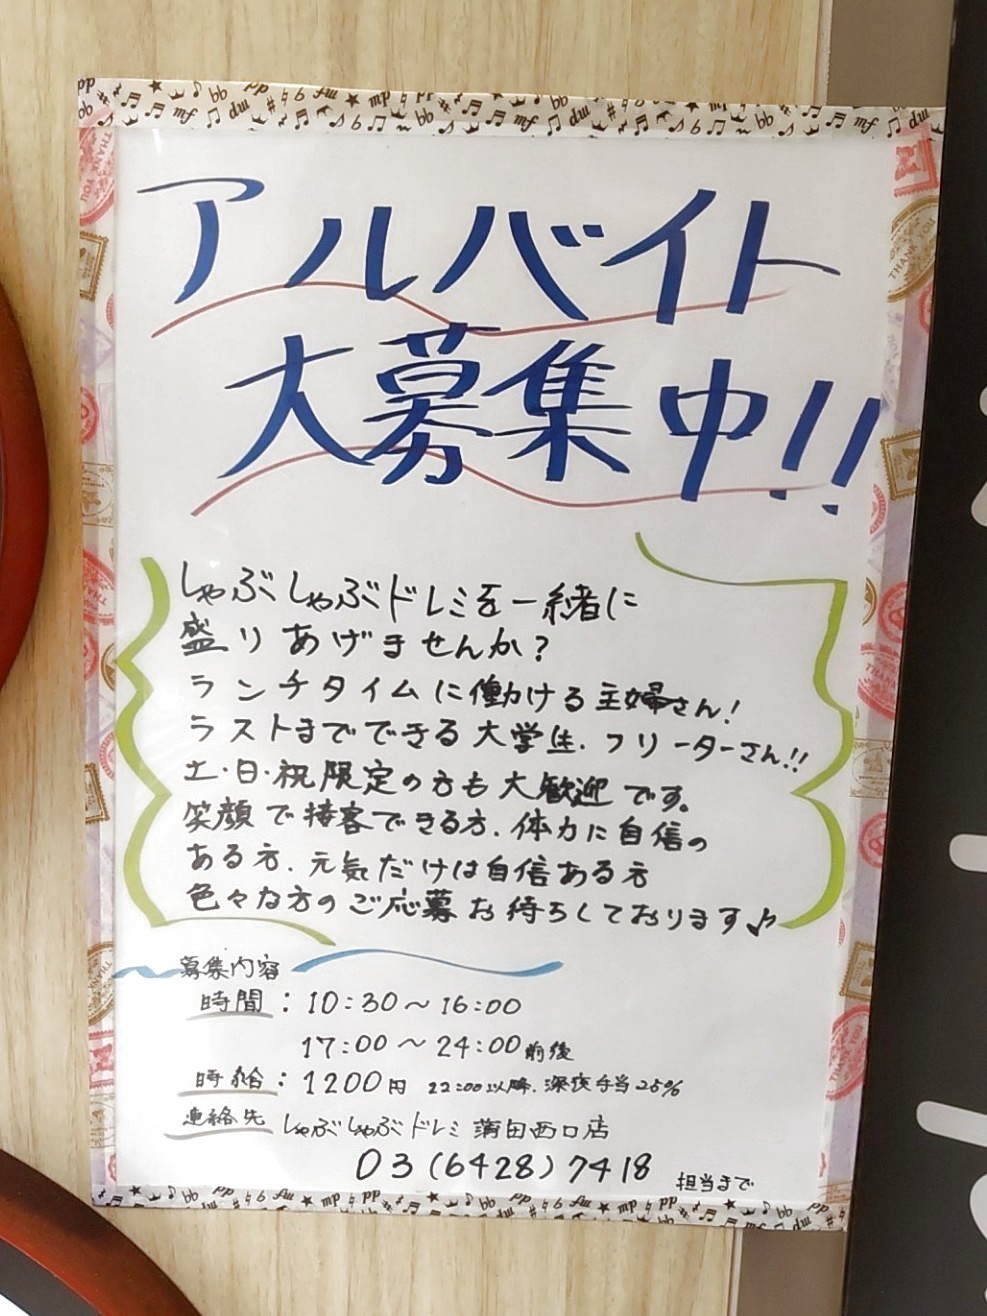 アルバイト
大募集中!!
しゃぶしゃぶドレミを一緒に
盛りあげませんか?
ランチタイムに働ける主婦さん!
ラストまでできる大学生.フリーターさん!!
土・日・祝限定の方も大歓迎です。
笑顔で接客できる方.体力に自信の
ある方.元気だけは自信ある方
色々な方のご応募お待ちしております♪
募集内容
時間:10:30〜16:00
17:00〜24:00前後
時給:1200円 22:00以降.深夜手当25%
連絡先 しゃぶしゃぶドレミ 蒲田西口店
03(6428)7418 担当まで